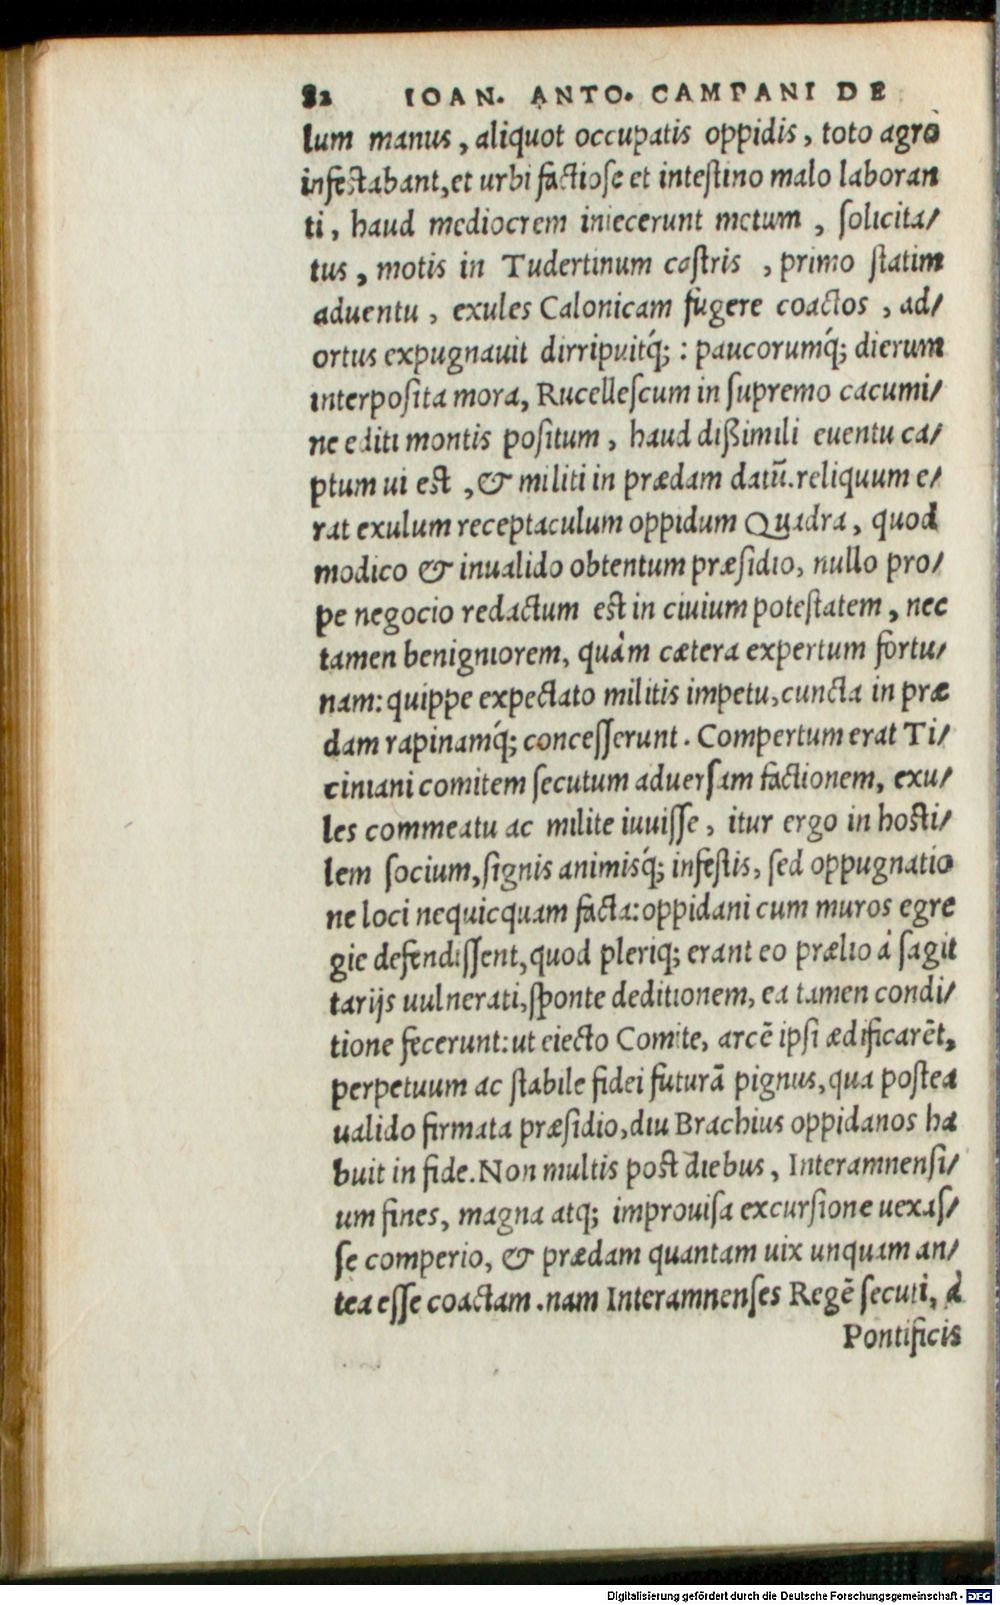 82 IOAN. ANTO. CAMPANI DE
lum manus, aliquot occupatis oppidis, toto agro
infestabant, et urbi factiose et intestino malo laboran
ti, haud mediocrem iniecerunt metum, solicita/
tus, motis in Tudertinum castris, primo statim
aduentu, exules Calonicam fugere coactos, ad/
ortus expugnauit dirripuitq́;: paucorumq́; dierum
interposita mora, Rucellescum in supremo cacumi/
ne editi montis positum, haud dißimili euentu ca/
ptum ui est, & militi in prædam datũ. reliquum e/
rat exulum receptaculum oppidum Quadra, quod
modico & inualido obtentum præsidio, nullo pro/
pe negocio redactum est in ciuium potestatem, nec
tamen benigniorem, quàm cætera expertum fortu/
nam: quippe expectato militis impetu, cuncta in præ
dam rapinamq́; concesserunt. Compertum erat Ti/
ciniani comitem secutum aduersam factionem, exu/
les commeatu ac milite iuuisse, itur ergo in hosti/
lem socium, signis animisq́; infestis, sed oppugnatio
ne loci nequicquam facta: oppidani cum muros egre
gie defendissent, quod pleriq; erant eo prælio à sagit
tarijs uulnerati, sponte deditionem, ea tamen condi/
tione fecerunt: ut eiecto Comite, arcẽ ipsi ædificarẽt,
perpetuum ac stabile fidei futurã pignus, qua postea
ualido firmata præsidio, diu Brachius oppidanos ha
buit in fide. Non multis post diebus, Interamnensi/
um fines, magna atq; improuisa excursione uexas/
se comperio, & prædam quantam uix unquam an/
tea esse coactam. nam Interamnenses Regẽ secuti, à
Pontificis
Digitalisierung gefördert durch die Deutsche Forschungsgemeinschaft - DFG